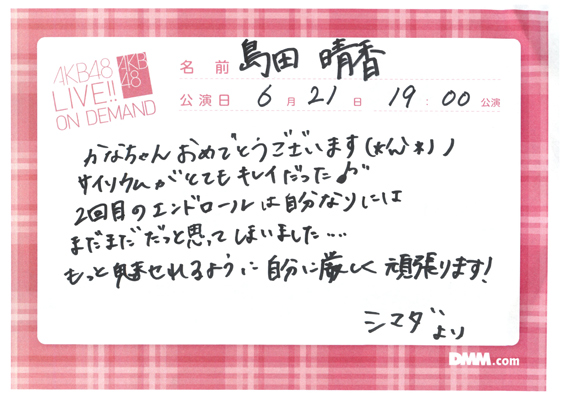 AKB48
LIVE!!
ON DEMAND
AKB
48
名前 島田 晴香
公演日 6月21日 19:00公演
かなちゃんおめでとうございます(*^^*)ノ
サイリウムがとてもキレイだった♪
2回目のエンドロールは自分なりには
まだまだだっと思ってしまいました....
もっと魅せれるように自分に厳しく頑張ります!
シマダより
DMM.com